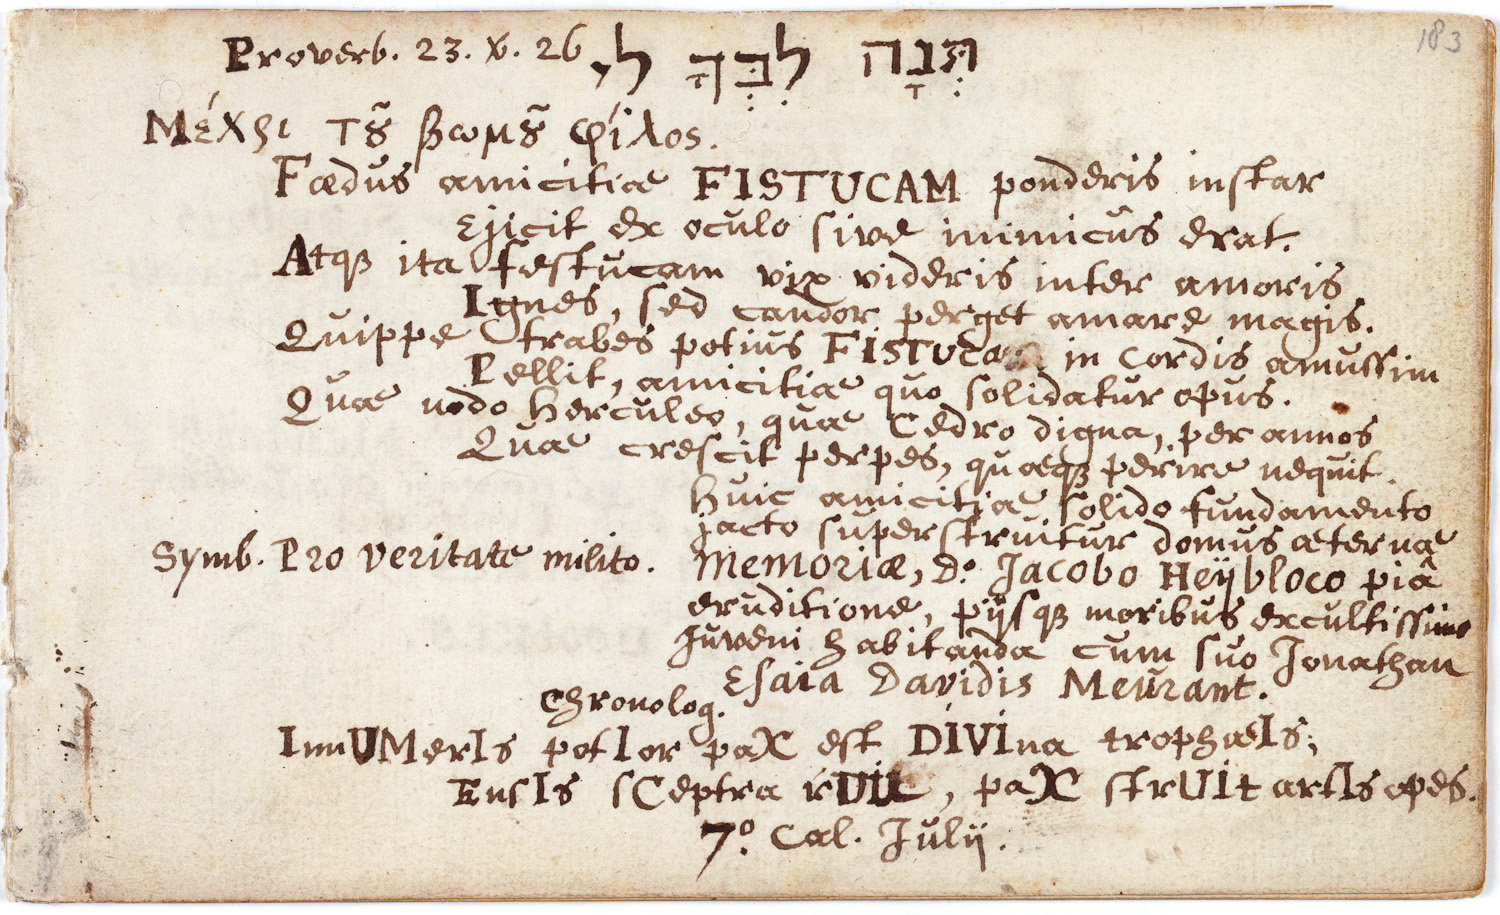 183
Proverb. 23. v. 26 תְּנָה לִבְּךָ לִי
Μέχρι τȣ͂ βωμȣ͂ φίλος.
Fœdus amicitiæ FISTUCAM ponderis instar
Ejicit ex oculo sive inimicus erat.
Atqꝫ ita festucam vix videris inter amoris
Ignes, sed candor perget amare magis.
Quippe trabes potius FISTUCA in cordis amussim
Pellit, amicitiæ quo solidatur opus.
Quæ nodo herculeo, quæ Cedro digna, per annos
Quæ crescit perpes, quæqꝫ perire nequit.
Huic amicitiæ solido fundamento
jacto superstruitur domus æternæ
Symb. Pro veritate milito. Memoriæ, D.º Jacobo Heÿbloco piâ
eruditione, pijsqꝫ moribus excultissimo
Juveni habitanda cum suo Jonathan
Esaia Davidis Meurant.
Chronolog.
InnUMerIs potIor paX est DIVIna trophæIs;
EnsIs sCeptra rUIt, paX strUIt artIs opes.
7.º Cal. Julij.